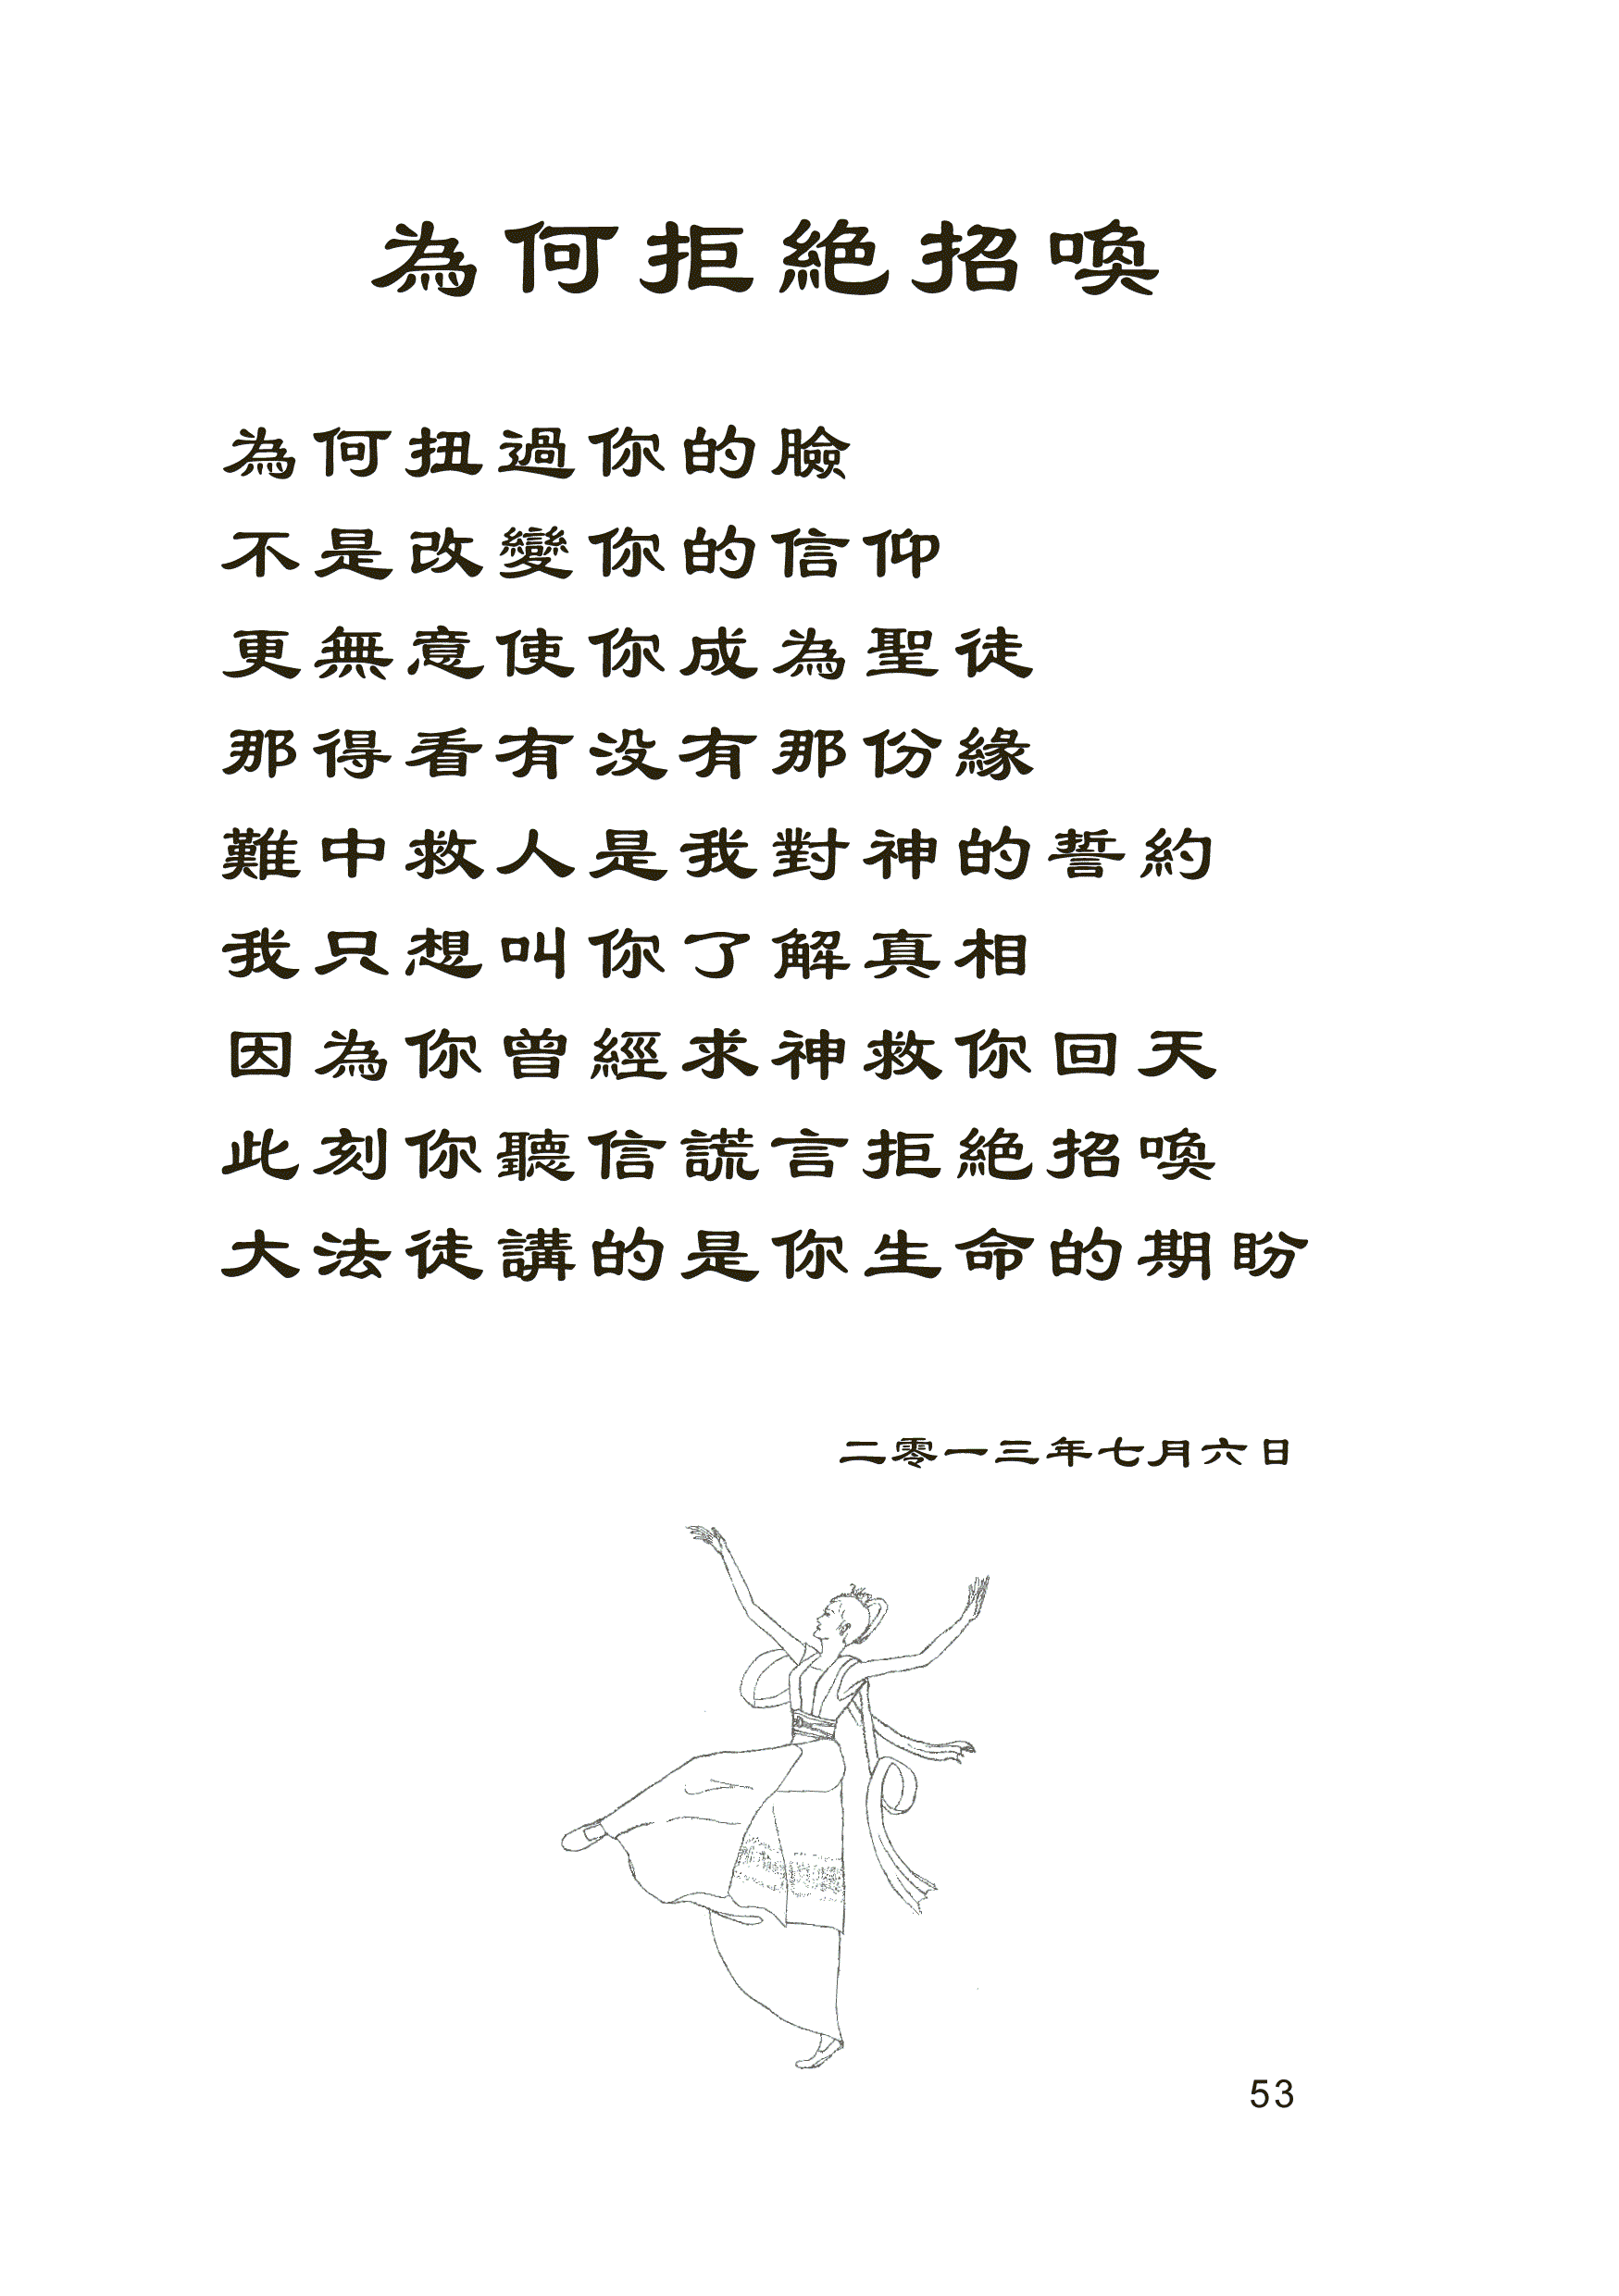 為何拒絕招喚
為何扭過你的臉
不是改變你的信仰
更無意使你成為聖徒
那得看有沒有那份緣
難中救人是我對神的誓約
我只想叫你了解真相
因為你曾經求神救你回天
此刻你聽信謊言拒絕招喚
大法徒講的是你生命的期盼
二零一三年七月六日
53